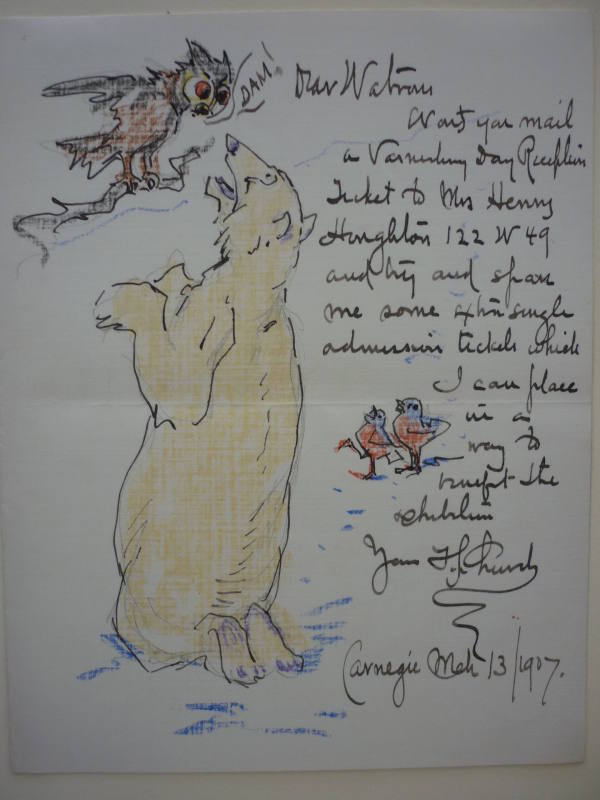 DAM!
Dear Watrous
Wont you mail
a Varnishing Day Reception
Ticket to Mrs Henry
Houghton 122 W 49
and try and spare
me some extra single
admission tickets which
I can place
in a
way to
benefit the
exhibition
Yours F. S. Church
Carnegie Mch 13/1907.